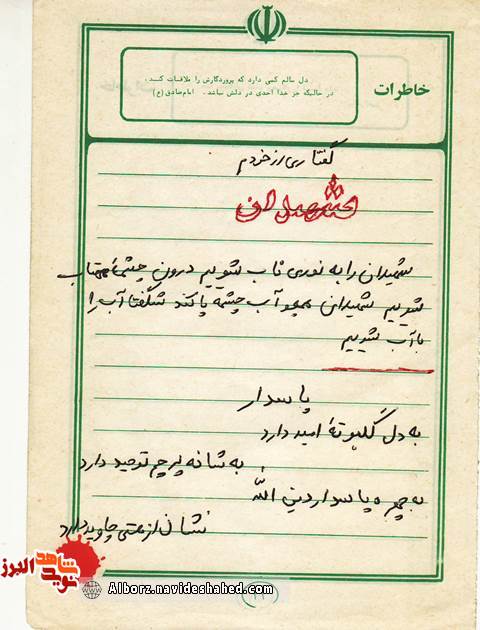 خاطرات
دل سالم کسی دارد که پروردگارش را ملاقات کند ،
در حالیکه جز خدا احدی در دلش نباشد . امام صادق (ع)
گفتاری از خودم
شهیدان
شهیدان را به نوری ناب شوییم درون چشمه مهتاب
شوییم شهیدان همچو آب چشمه پاکند شگفتا آب را
با آب شوییم
پاسدار
به دل گلبوتهٔ امید دارد
به شانه پرچم توحید دارد
به چهره پاسدار دین الله
نشان از ملتی جاوید دارد
نوید شاهد البرز
Alborz.navideshahed.com